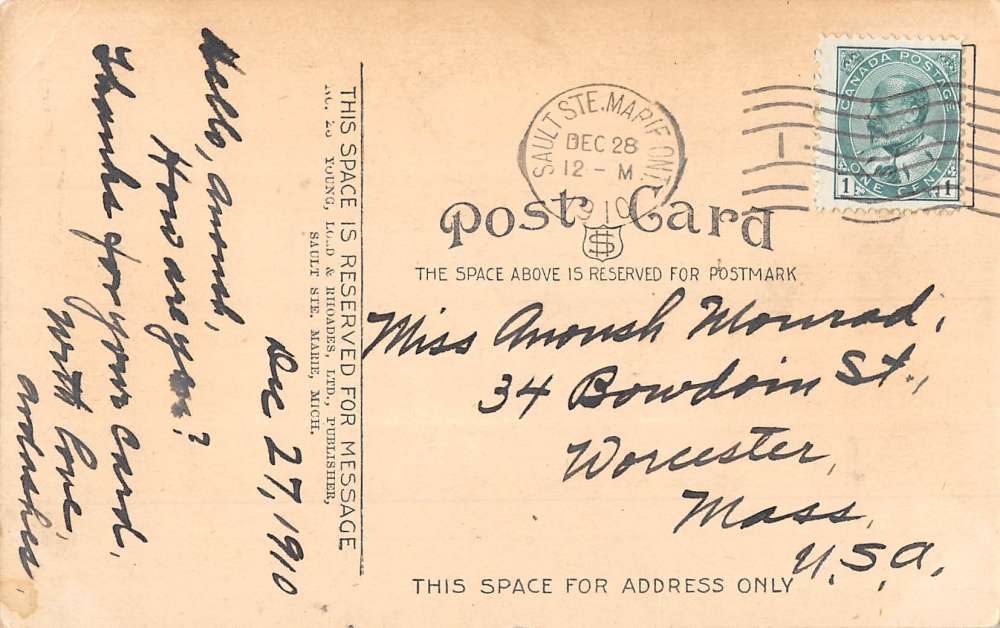 Dec 27, 1910
Hello, Anoush,
How are you?
Thanks for your card.
With love,
THIS SPACE IS RESERVED FOR MESSAGE
YOUNG, LORD & RHOADES, LTD., PUBLISHER,
SAULT STE. MARIE, MICH.
CANADA POSTAGE
1 ONE CENT 1
SAULT STE. MARIE ONT.
DEC 28
12 - M
1910
Post Card
THE SPACE ABOVE IS RESERVED FOR POSTMARK
Miss Anoush Mourad,
34 Bowdoin St.,
Worcester,
Mass,
U.S.A.
THIS SPACE FOR ADDRESS ONLY